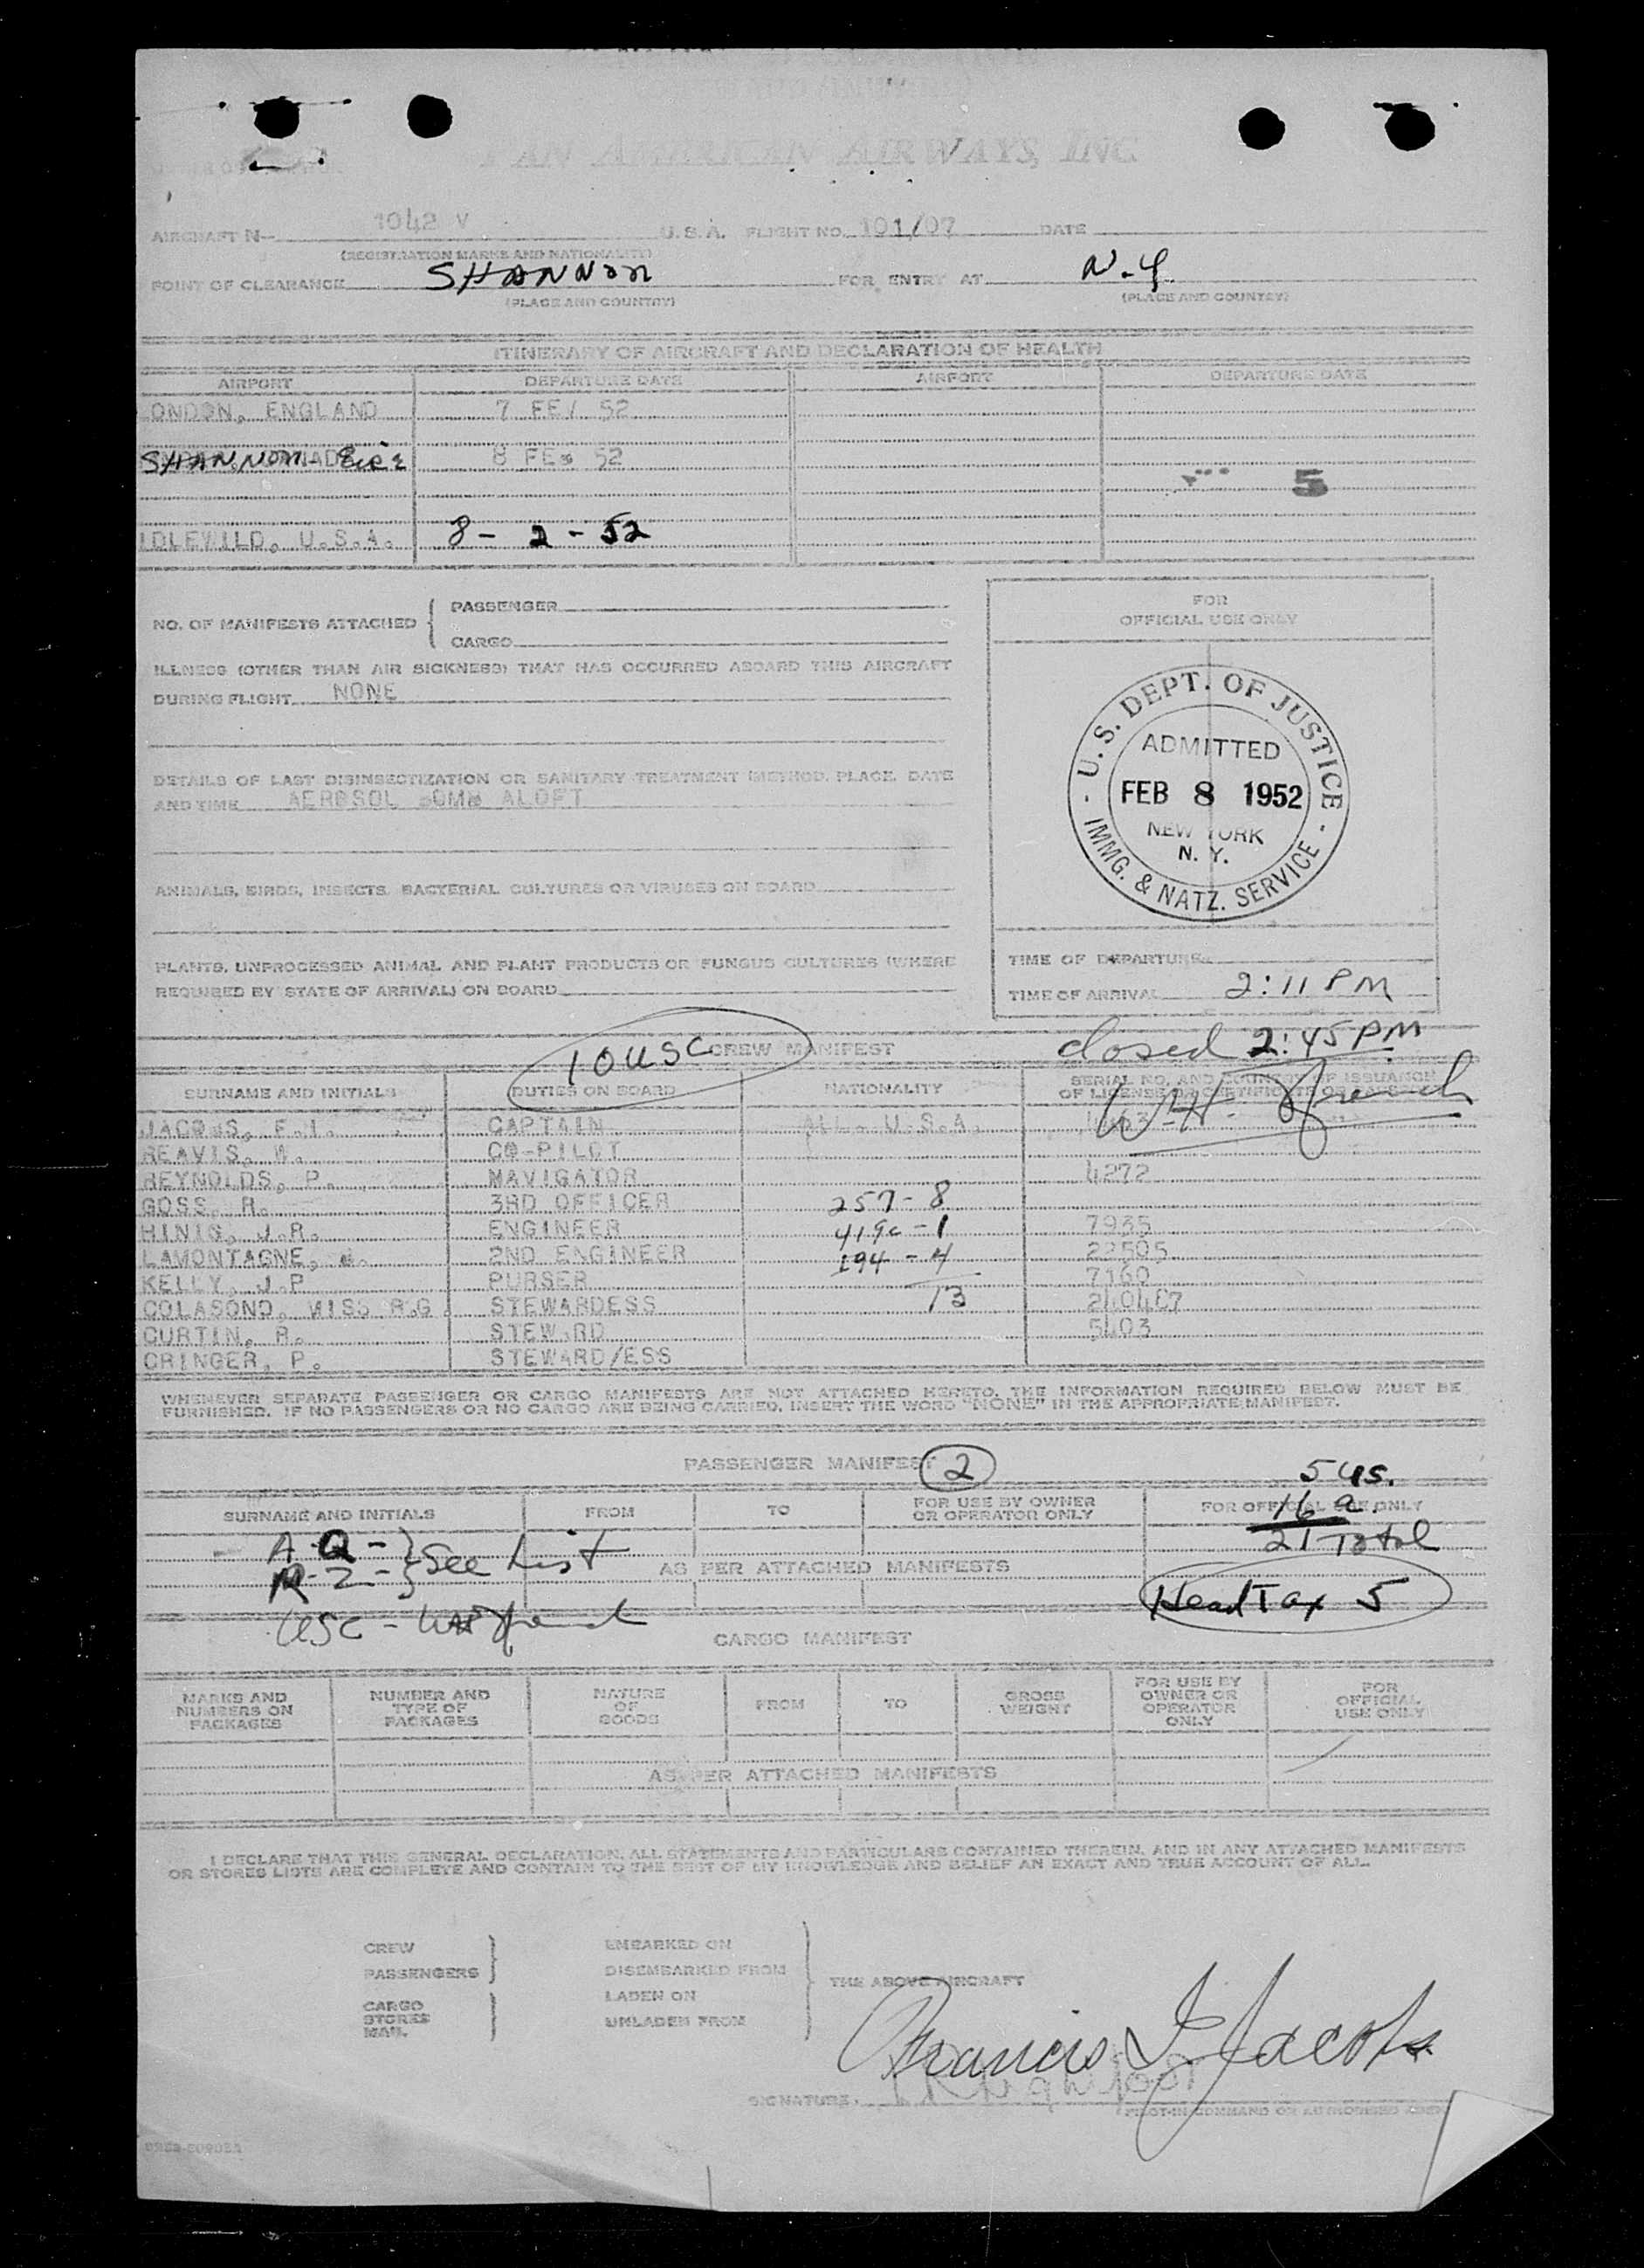 PAN AMERICAN AIRWAYS, INC
AIRCRAFT N- 1042 V U.S.A. FLIGHT NO. 101/07 DATE
(REGISTRATION MARKS AND NATIONALITY)
POINT OF CLEARANCE SHANNON FOR ENTRY AT N.Y.
(PLACE AND COUNTRY) (PLACE AND COUNTRY)
ITINERARY OF AIRCRAFT AND DECLARATION OF HEALTH
AIRPORT DEPARTURE DATE AIRPORT DEPARTURE DATE
ONDON, ENGLAND 7 FE/ 52
SHANNON- Eire 8 FEB 52
5
IDLEWILD, U.S.A. 8 - 2 - 52
NO. OF MANIFESTS ATTACHED PASSENGER
CARGO
FOR
OFFICIAL USE ONLY
ILLNESS (OTHER THAN AIR SICKNESS) THAT HAS OCCURRED ABOARD THIS AIRCRAFT
DURING FLIGHT NONE
DETAILS OF LAST DISINSECTIZATION OR SANITARY TREATMENT (METHOD, PLACE, DATE
AND TIME AEROSOL BOMB ALOFT
U.S. DEPT. OF JUSTICE
ADMITTED
FEB 8 1952
NEW YORK
N. Y.
IMMG. & NATZ. SERVICE
ANIMALS, BIRDS, INSECTS, BACTERIAL CULTURES OR VIRUSES ON BOARD
PLANTS, UNPROCESSED ANIMAL AND PLANT PRODUCTS OR FUNGUS CULTURES (WHERE
REQUIRED BY STATE OF ARRIVAL) ON BOARD
TIME OF DEPARTURE
TIME OF ARRIVAL 2:11 PM
10 USC CREW MANIFEST closed 2:45 PM
SURNAME AND INITIALS DUTIES ON BOARD NATIONALITY SERIAL NO. AND COUNTRY OF ISSUANCE
OF LICENSE OR CERTIFICATE
JACOBS, F.I. CAPTAIN ALL U.S.A.
REAVIS, W. CO-PILOT
REYNOLDS, P. NAVIGATOR 4272
GOSS, R. 3RD OFFICER 257 - 8
HINIS, J.R. ENGINEER 419c - 1 7935
LAMONTAGNE, 2ND ENGINEER 194 - 4 22505
KELLY, J.P. PURSER 13 7160
COLASONO, MISS R.G. STEWARDESS
CURTIN, R. STEWARD 5403
CRINGER, P. STEWARD/ESS
WHENEVER SEPARATE PASSENGER OR CARGO MANIFESTS ARE NOT ATTACHED HERETO, THE INFORMATION REQUIRED BELOW MUST BE
FURNISHED. IF NO PASSENGERS OR NO CARGO ARE BEING CARRIED, INSERT THE WORD "NONE" IN THE APPROPRIATE MANIFEST.
PASSENGER MANIFEST 2 5 US.
SURNAME AND INITIALS FROM TO FOR USE BY OWNER
OR OPERATOR ONLY FOR OFFICIAL USE ONLY
16 a
A-Q- } See List 21 Total
R-Z- AS PER ATTACHED MANIFESTS
Head Tax 5
USC -
CARGO MANIFEST
MARKS AND
NUMBERS ON
PACKAGES
NUMBER AND
TYPE OF
PACKAGES
NATURE
OF
GOODS
FROM
TO
GROSS
WEIGHT
FOR USE BY
OWNER OR
OPERATOR
ONLY
FOR
OFFICIAL
USE ONLY
AS PER ATTACHED MANIFESTS
I DECLARE THAT THIS GENERAL DECLARATION, ALL STATEMENTS AND PARTICULARS CONTAINED THEREIN, AND IN ANY ATTACHED MANIFESTS
OR STORES LISTS ARE COMPLETE AND CONTAIN TO THE BEST OF MY KNOWLEDGE AND BELIEF AN EXACT AND TRUE ACCOUNT OF ALL.
CREW
PASSENGERS
CARGO
STORES
MAIL
EMBARKED ON
DISEMBARKED FROM
LADEN ON
UNLADEN FROM
THE ABOVE AIRCRAFT
Francis I. Jacobs
SIGNATURE.
PILOT-IN COMMAND OR AUTHORISED AGENT